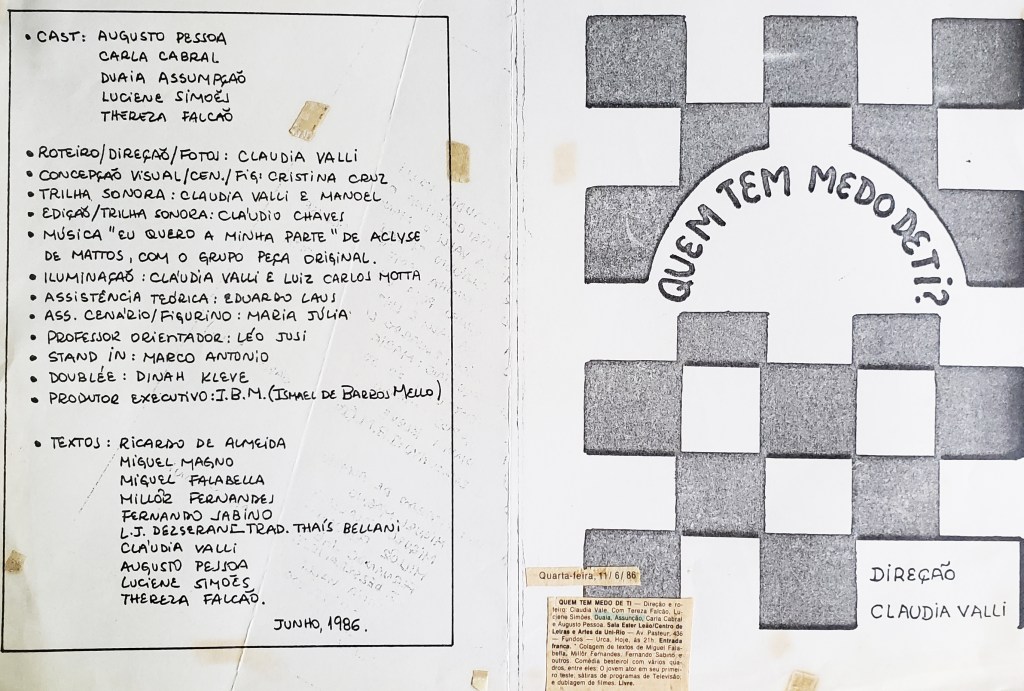 • CAST: AUGUSTO PESSOA
CARLA CABRAL
DUAIA ASSUMPÇÃO
LUCIENE SIMÕES
THEREZA FALCÃO
• ROTEIRO/DIREÇÃO/FOTOS: CLAUDIA VALLI
• CONCEPÇÃO VISUAL/CEN./FIG: CRISTINA CRUZ
• TRILHA SONORA: CLAUDIA VALLI E MANOEL
• EDIÇÃO/TRILHA SONORA: CLAÚDIO CHAVES
• MÚSICA "EU QUERO A MINHA PARTE" DE ACLYSE
DE MATTOS, COM O GRUPO PEÇA ORIGINAL.
• ILUMINAÇÃO: CLAÚDIA VALLI E LUIZ CARLOS MOTTA
• ASSISTÊNCIA TEÓRICA: EDUARDO LAUS
• ASS. CENÁRIO/FIGURINO: MARIA JÚLIA
• PROFESSOR ORIENTADOR: LÉO JUSI
• STAND IN: MARCO ANTONIO
• DOUBLÉE: DINAH KLEVE
• PRODUTOR EXECUTIVO: I.B.M. (ISMAEL DE BARROS MELLO)
• TEXTOS: RICARDO DE ALMEIDA
MIGUEL MAGNO
MIGUEL FALABELLA
MILLÔR FERNANDES
FERNANDO SABINO
L.J. TRAD. THAÍS BELLANI
CLAÚDIA VALLI
AUGUSTO PESSOA
LUCIENE SIMÕES
THEREZA FALCÃO.
JUNHO, 1986.
QUEM TEM MEDO DE TI?
DIREÇÃO
CLAUDIA VALLI
Quarta-feira, 11/6/86
QUEM TEM MEDO DE TI — Direção e ro-
teiro: Claudia Vale. Com Tereza Falcão, Lu-
ciene Simões, Duaia, Assunção, Carla Cabral
e Augusto Pessoa. Sala Ester Leão/Centro de
Letras e Artes da Uni-Rio — Av. Pasteur, 436
— Fundos — Urca, Hoje, às 21h. Entrada
franca. * Colagem de textos de Miguel Fala-
bella, Millôr Fernandes, Fernando Sabino e
outros. Comédia besteirol com vários qua-
dros, entre eles: O jovem ator em seu primei-
ro teste, sátiras de programas de Televisão,
e dublagem de filmes. Livre.